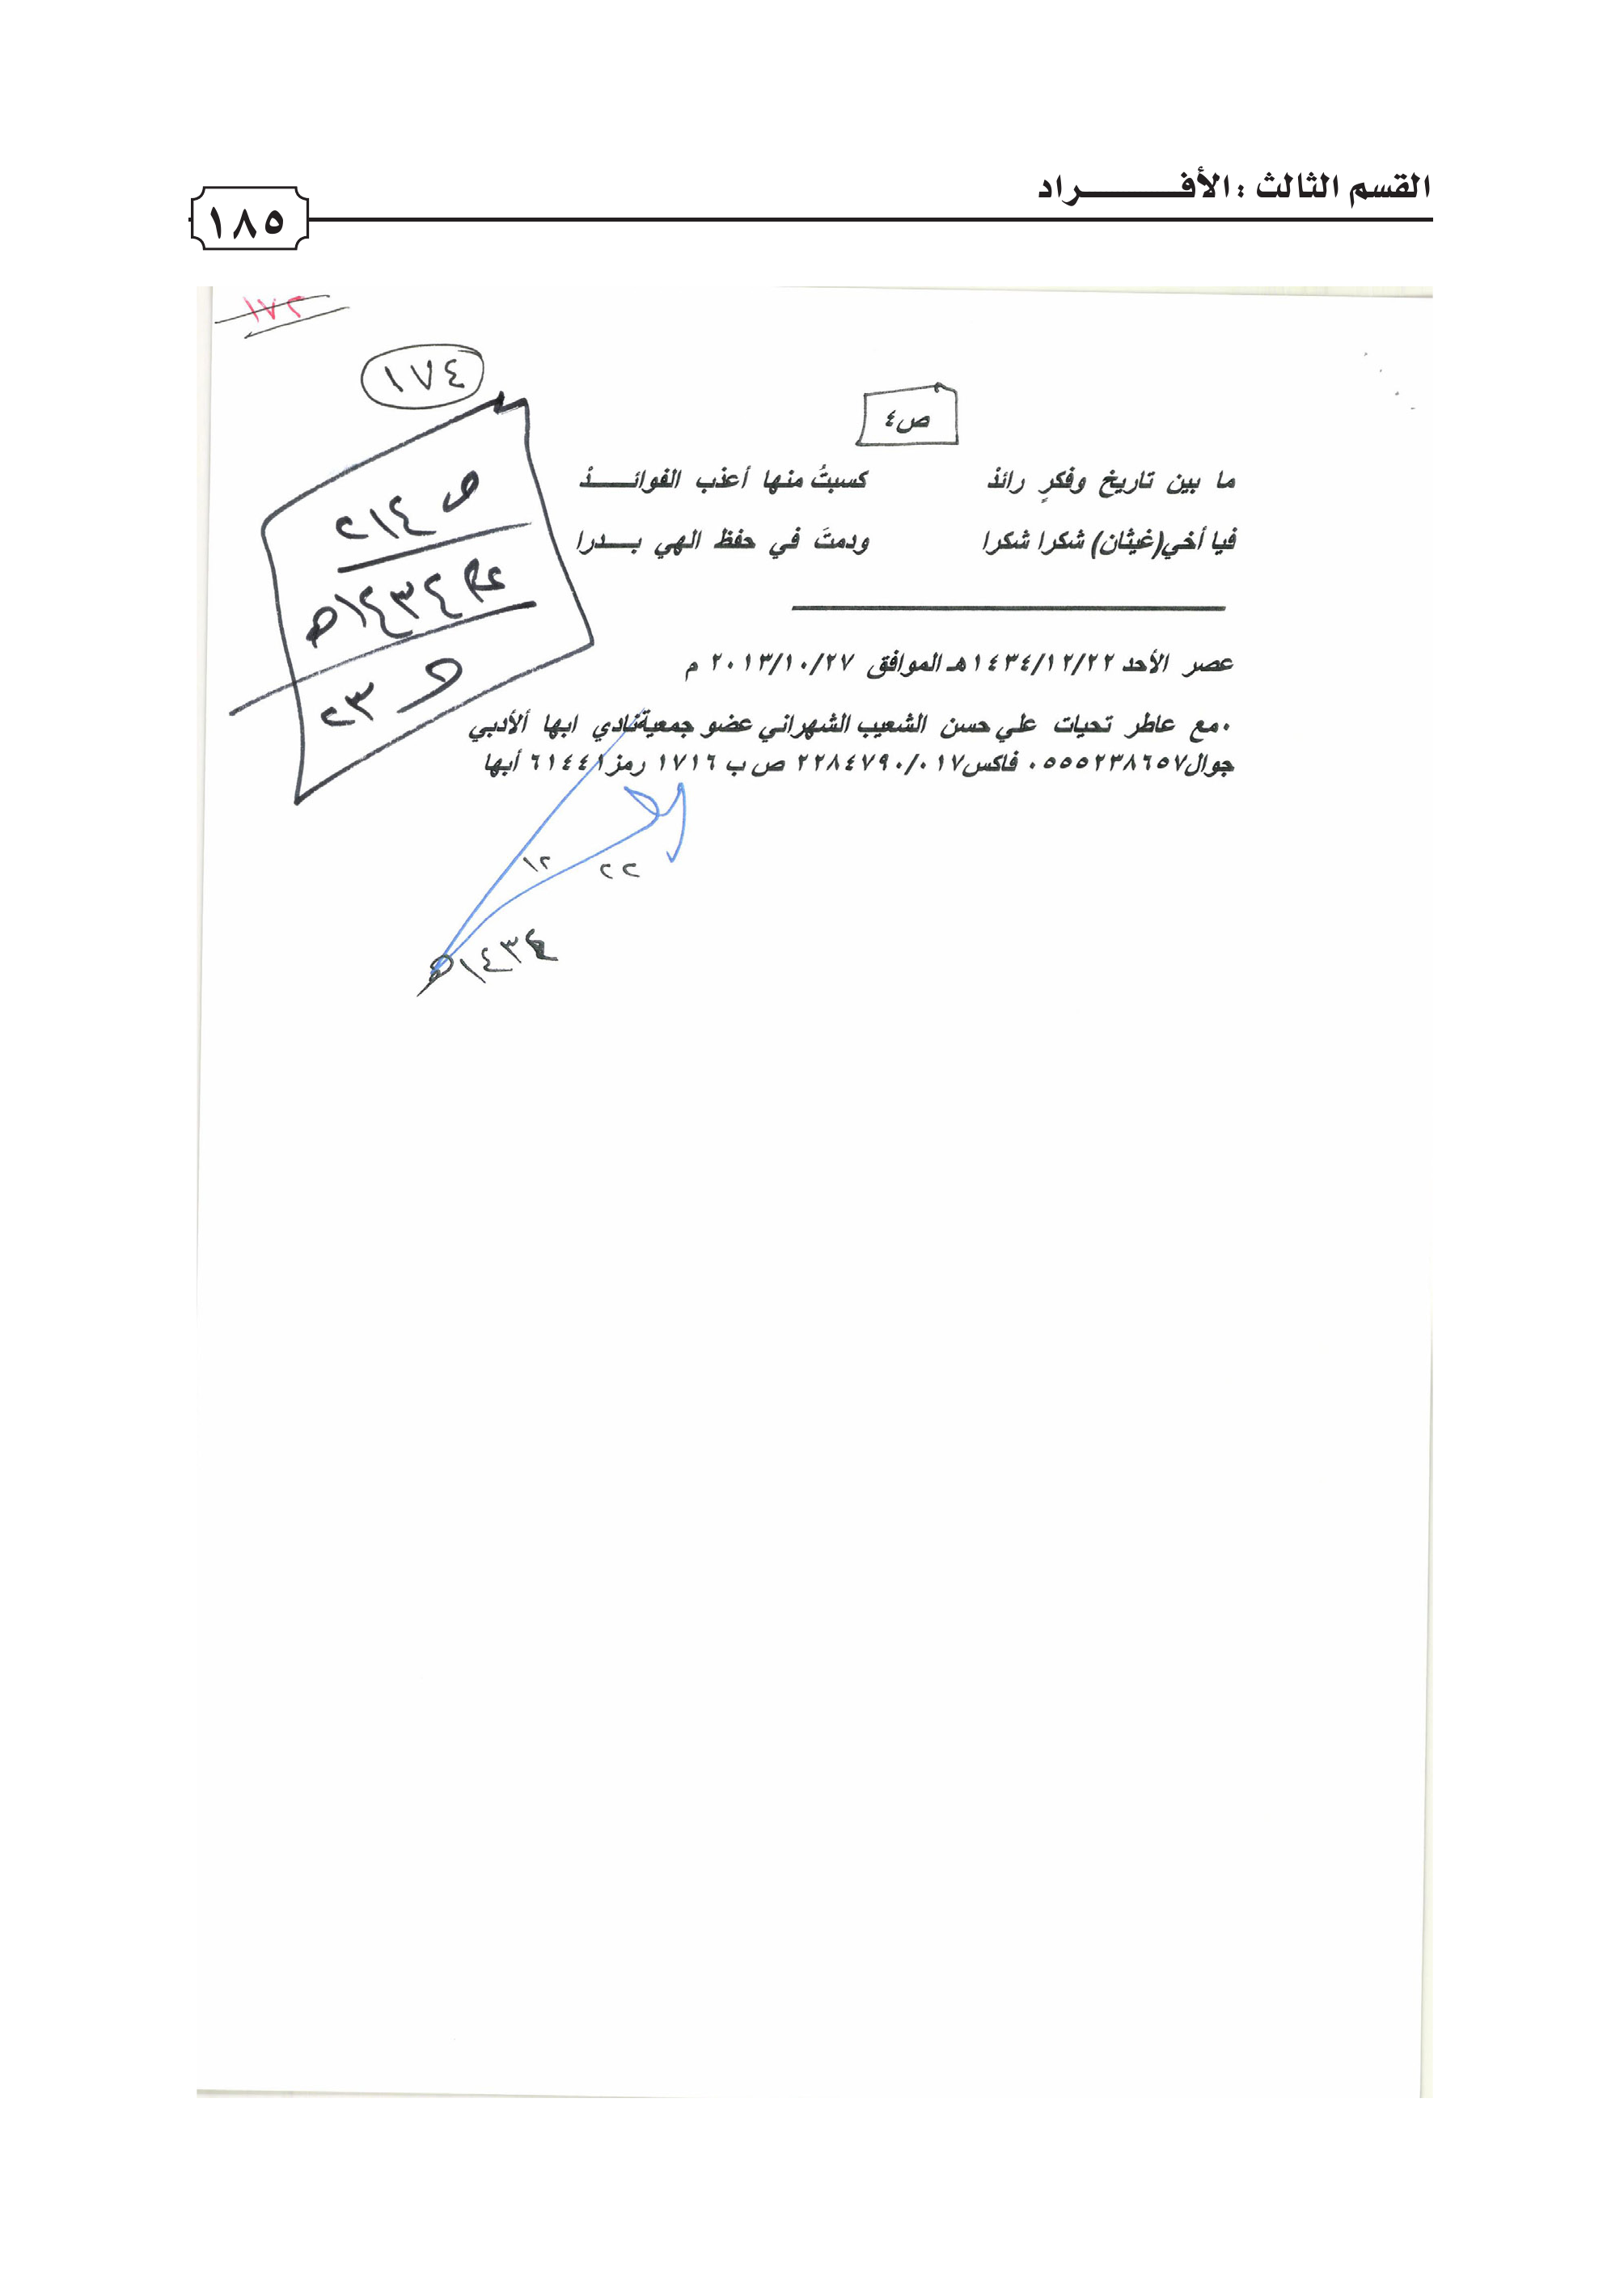 القسم الثالث : الأفـــــــــراد
١٨٥
١٧٢
١٧٤
ص٤
ما بين تاريخ وفكرٍ رائدْ كسبتُ منها أعذب الفوائـــــدْ
فيا أخي(غيثان) شكرا شكرا ودمتَ في حفظ الهي بـــــدرا
ص ٢١٤
١٤٣٤هـ
٢٣
عصر الأحد ١٤٣٤/١٢/٢٢هـ الموافق ٢٠١٣/١٠/٢٧ م
٠مع عاطر تحيات علي حسن الشعيب الشهراني عضو جمعية نادي ابها ألأدبي
جوال٠٥٥٥٢٣٨٦٥٧ فاكس٢٢٨٤٧٩٠/٠١٧ ص ب ١٧١٦ رمز٦١٤٤١ أبها
٢٢
١٢
١٤٣٤هـ